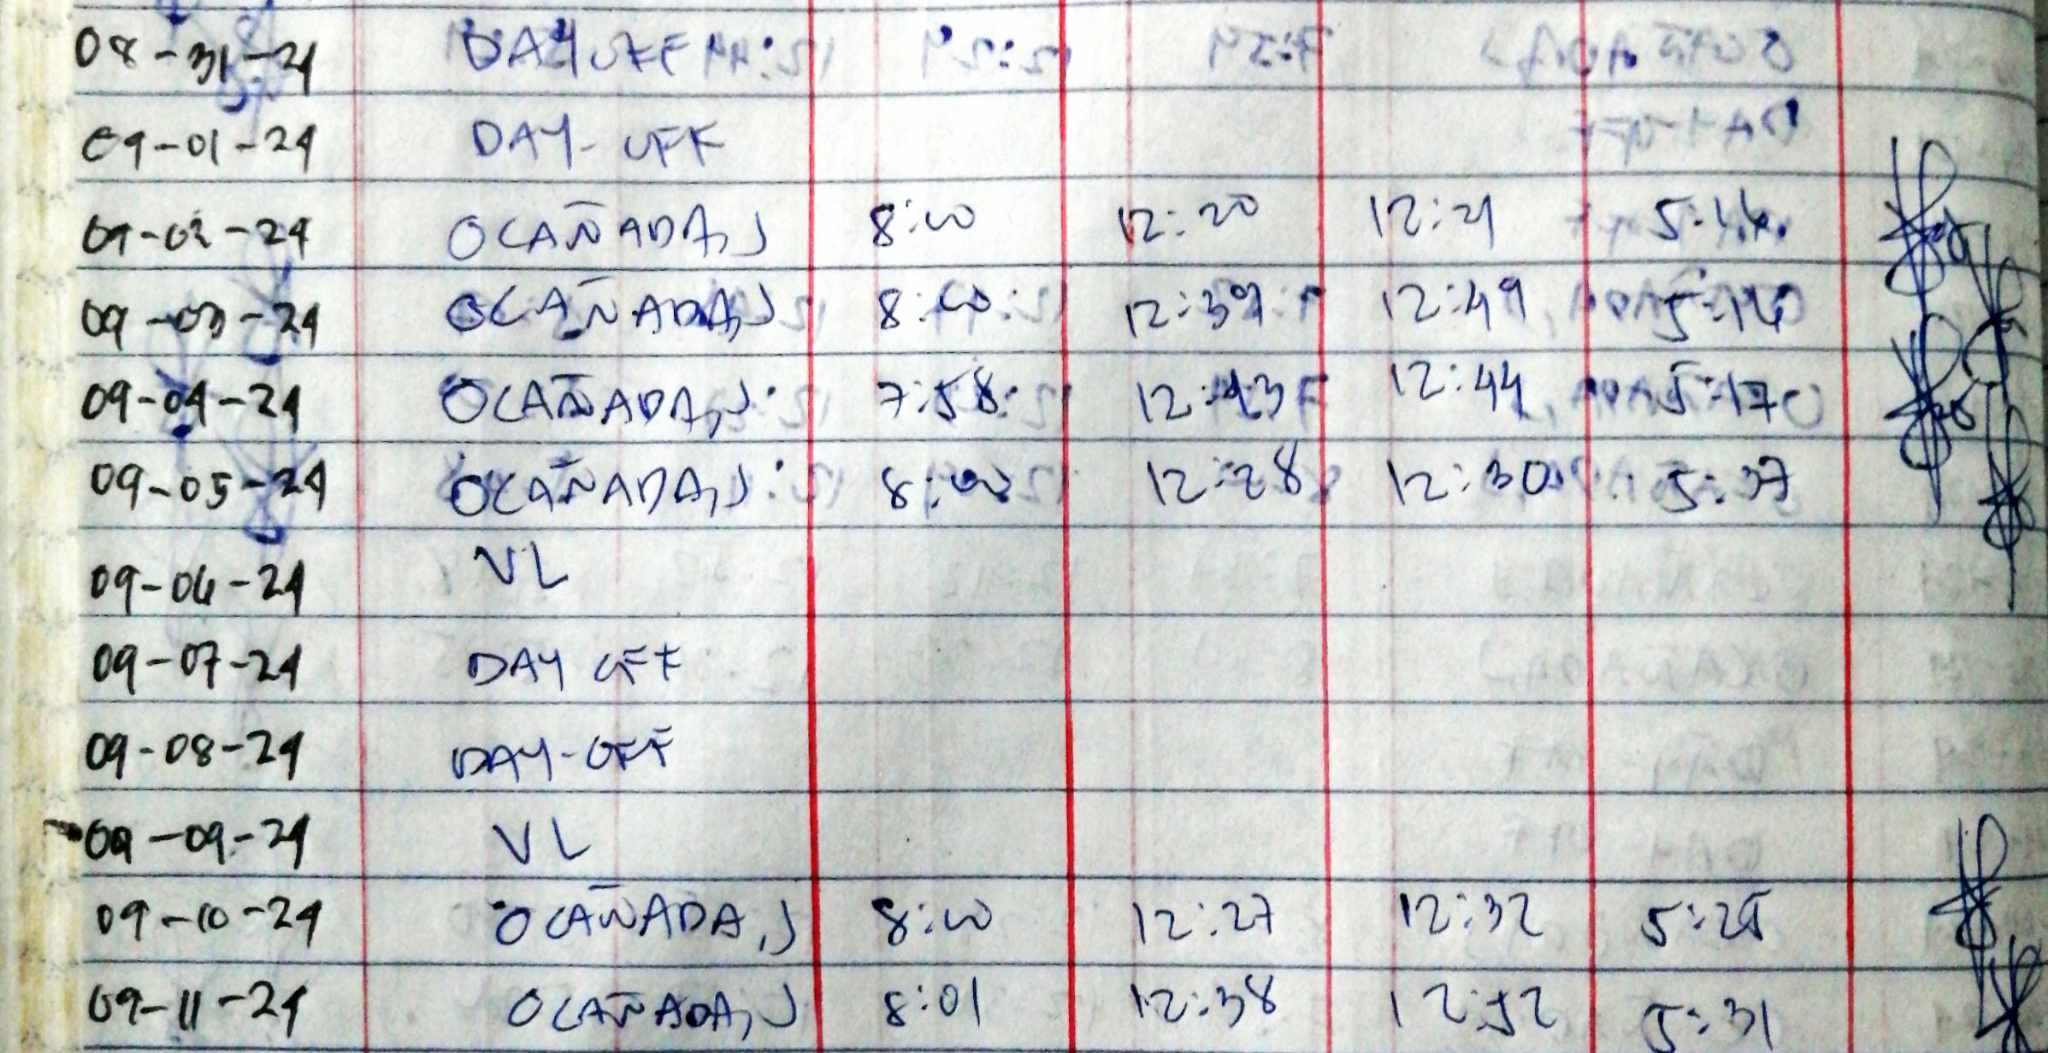 08-31-24 DAY OFF
09-01-24 DAY-OFF
09-02-24 OCAÑADA, J 8:00 12:20 12:21 5:16
09-03-24 OCAÑADA, J 8:00 12:39 12:49 5:16
09-04-24 OCAÑADA, J 7:58 12:43 12:44 5:17
09-05-24 OCAÑADA, J 8:00 12:28 12:30 5:37
09-06-24 VL
09-07-24 DAY OFF
09-08-24 DAY-OFF
09-09-24 VL
09-10-24 OCAÑADA, J 8:00 12:27 12:32 5:25
09-11-24 OCAÑADA, J 8:01 12:38 12:52 5:31